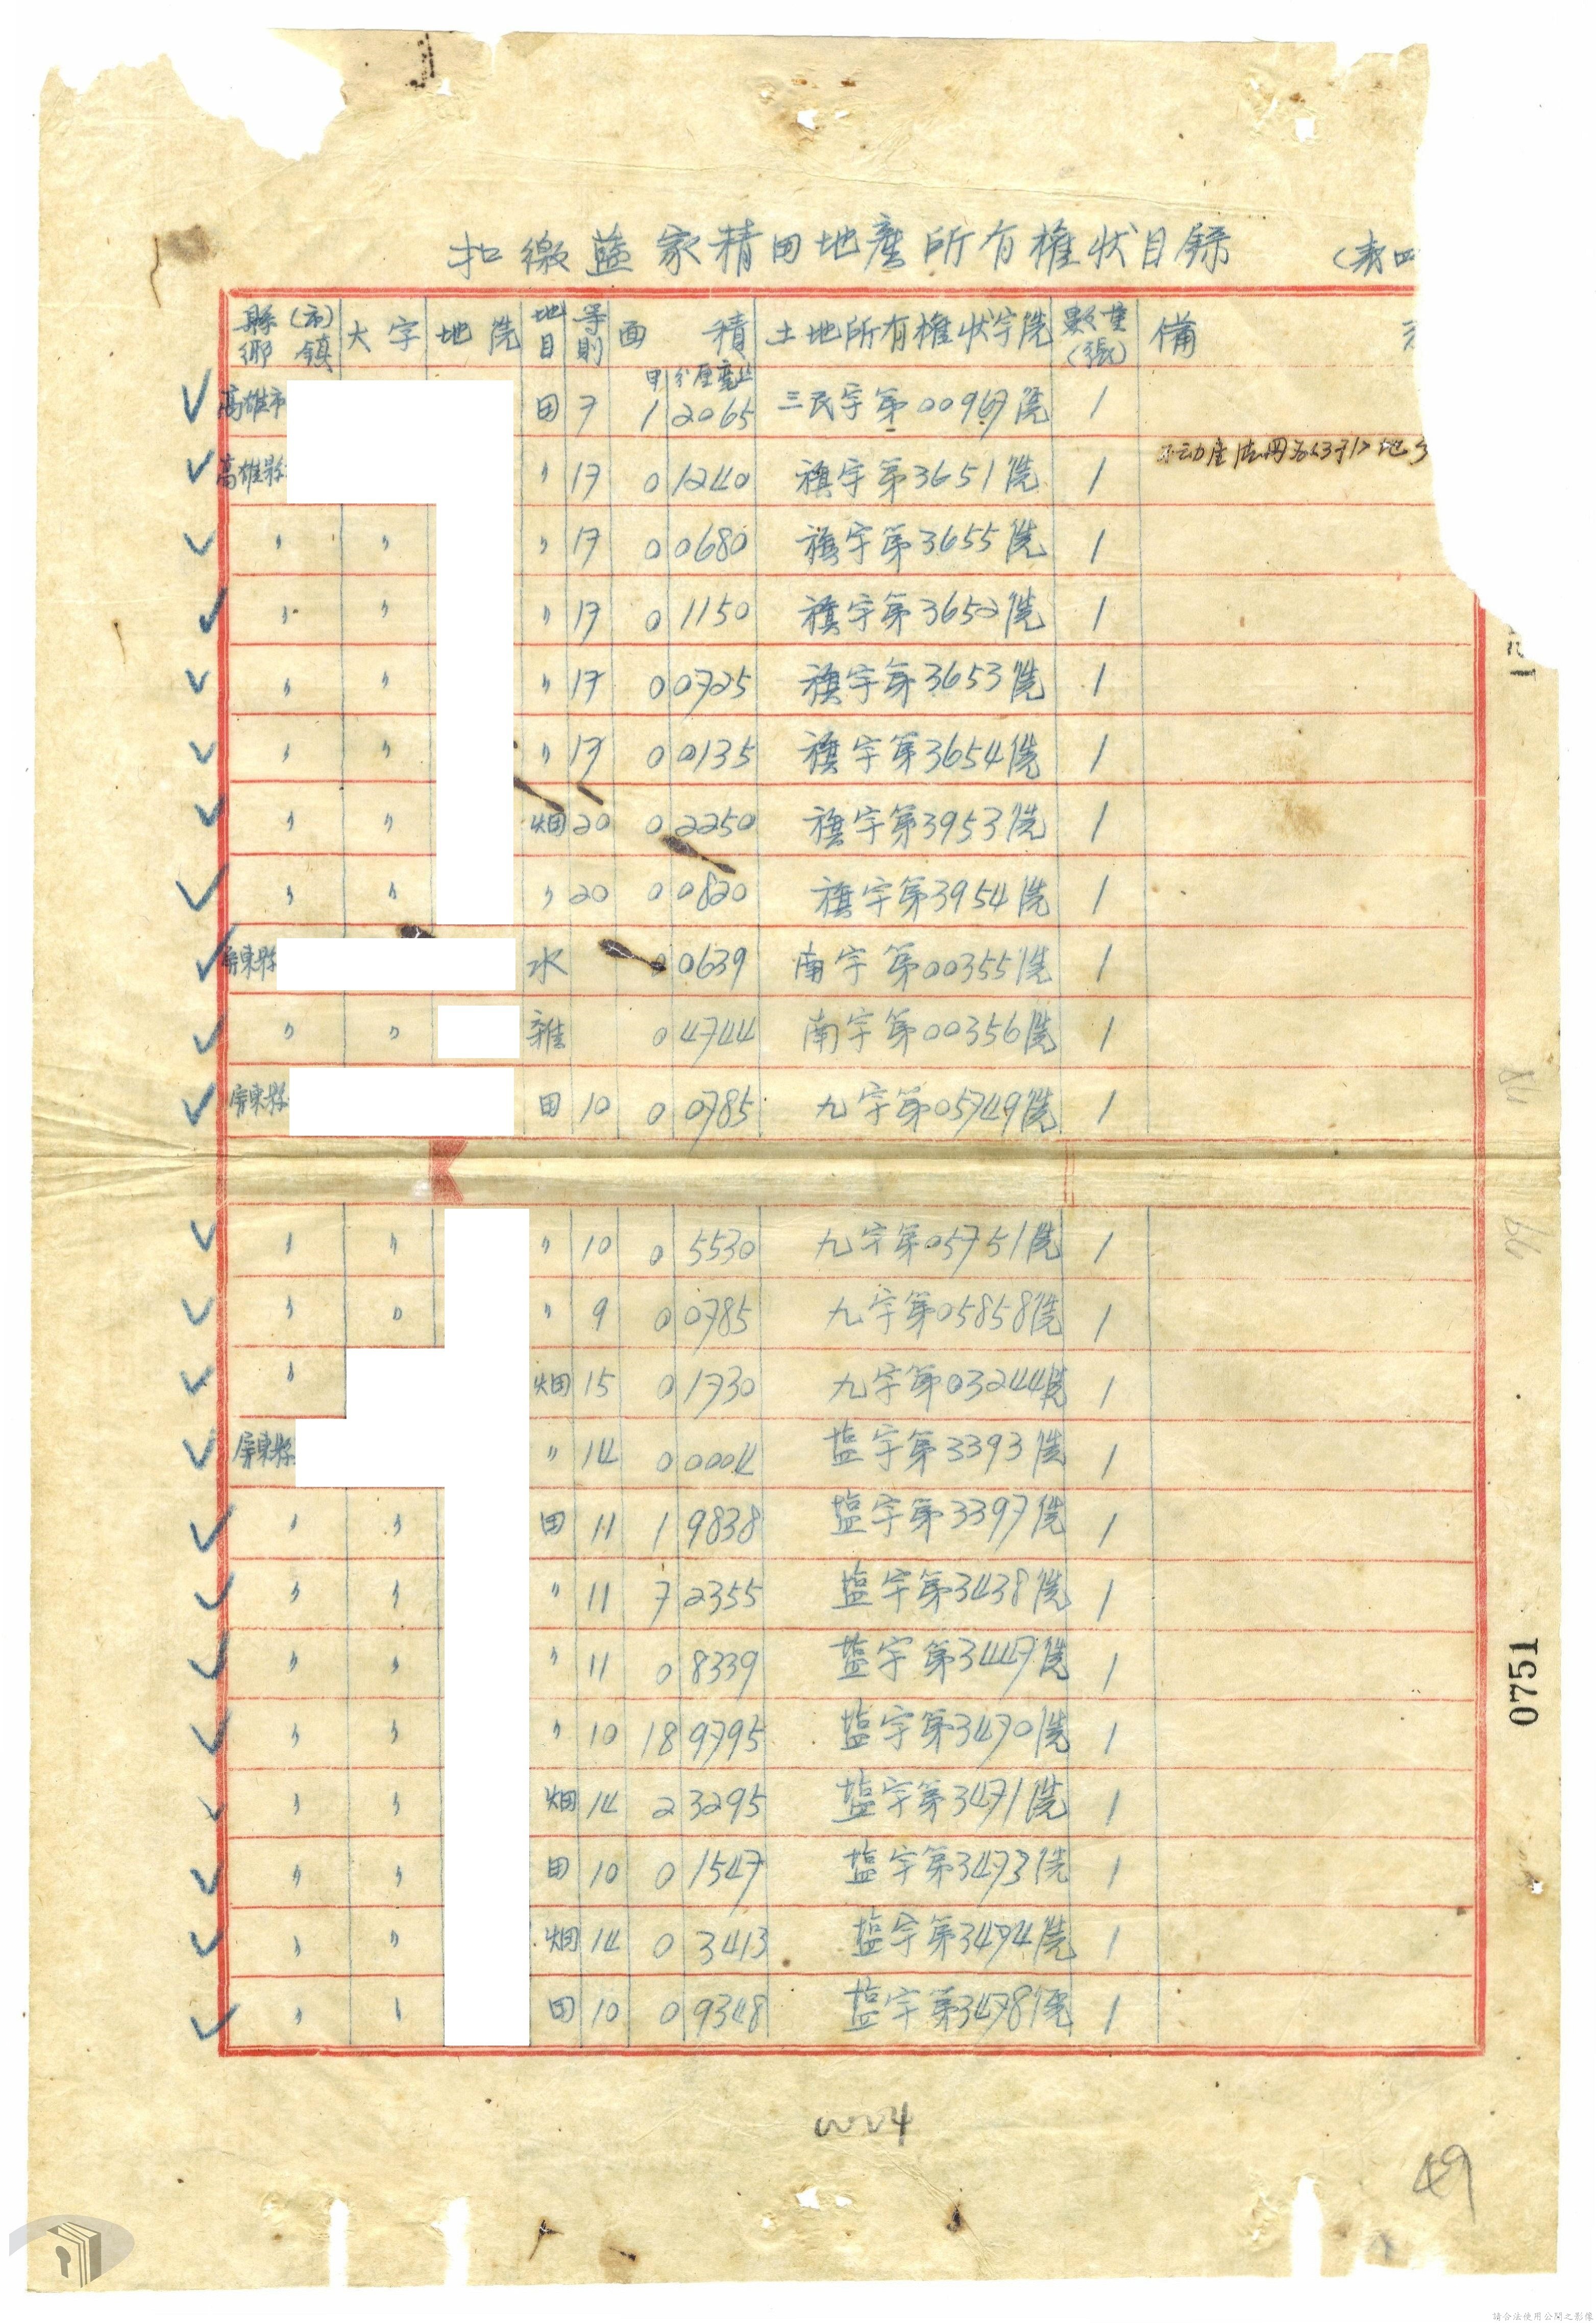 扣繳藍家精田地產所有權狀目錄 (表四
縣(市)鄉鎮 大字 地號 地目 等則 面積 土地所有權狀字號 數量(張) 備
甲 分厘毫丝
高雄市 田 7 1 2065 三民字第00967號 1
高雄縣 〃 17 0 1240 旗字第3651號 1
〃 〃 〃 17 0 0680 旗字第3655號 1
〃 〃 〃 17 0 1150 旗字第3652號 1
〃 〃 〃 17 0 0725 旗字第3653號 1
〃 〃 〃 17 0 0135 旗字第3654號 1
〃 〃 畑 20 0 2250 旗字第3953號 1
〃 〃 〃 20 0 0820 旗字第3954號 1
屏東縣 水 0 0639 南字第00355號 1
〃 〃 雜 0 4744 南字第00356號 1
屏東縣 田 10 0 0785 九字第05749號 1
〃 〃 〃 10 0 5530 九字第05751號 1
〃 〃 〃 9 0 0785 九字第05858號 1
〃 畑 15 0 1730 九字第03244號 1
屏東縣 〃 14 0 0004 塩字第3393號 1
〃 〃 田 11 1 9838 塩字第3397號 1
〃 〃 〃 11 7 2355 塩字第3438號 1
〃 〃 〃 11 0 8339 塩字第3447號 1
〃 〃 〃 10 18 9795 塩字第3470號 1
〃 〃 畑 14 2 3295 塩字第3471號 1
〃 〃 田 10 0 1547 塩字第3473號 1
〃 〃 畑 14 0 3413 塩字第3474號 1
〃 〃 田 10 0 9348 塩字第3478號 1
0751
49
請合法使用公開之影像